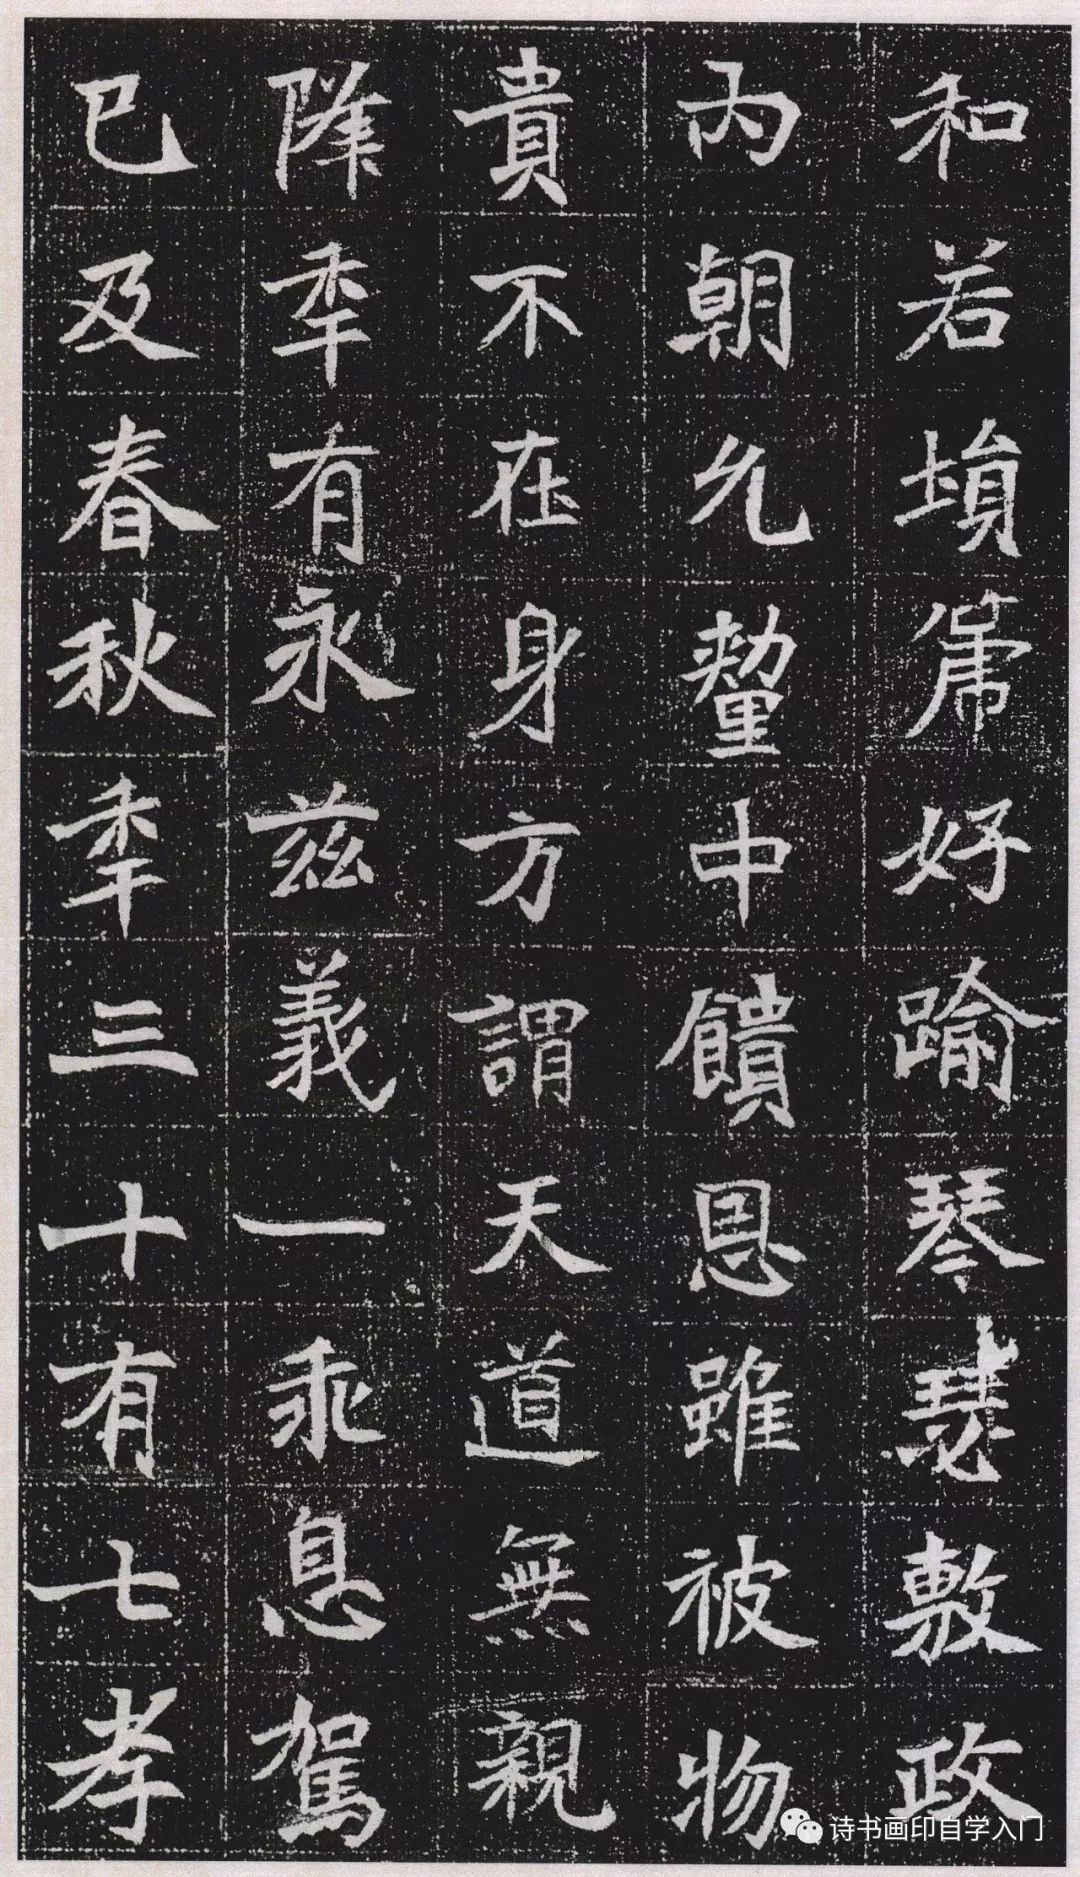 和若塤箎好踰琴瑟敷政
內朝允釐中饋恩雖被物
貴不在身方謂天道無親
降秊有永茲義一乖息駕
已及春秋秊三十有七孝
诗书画印自学入门